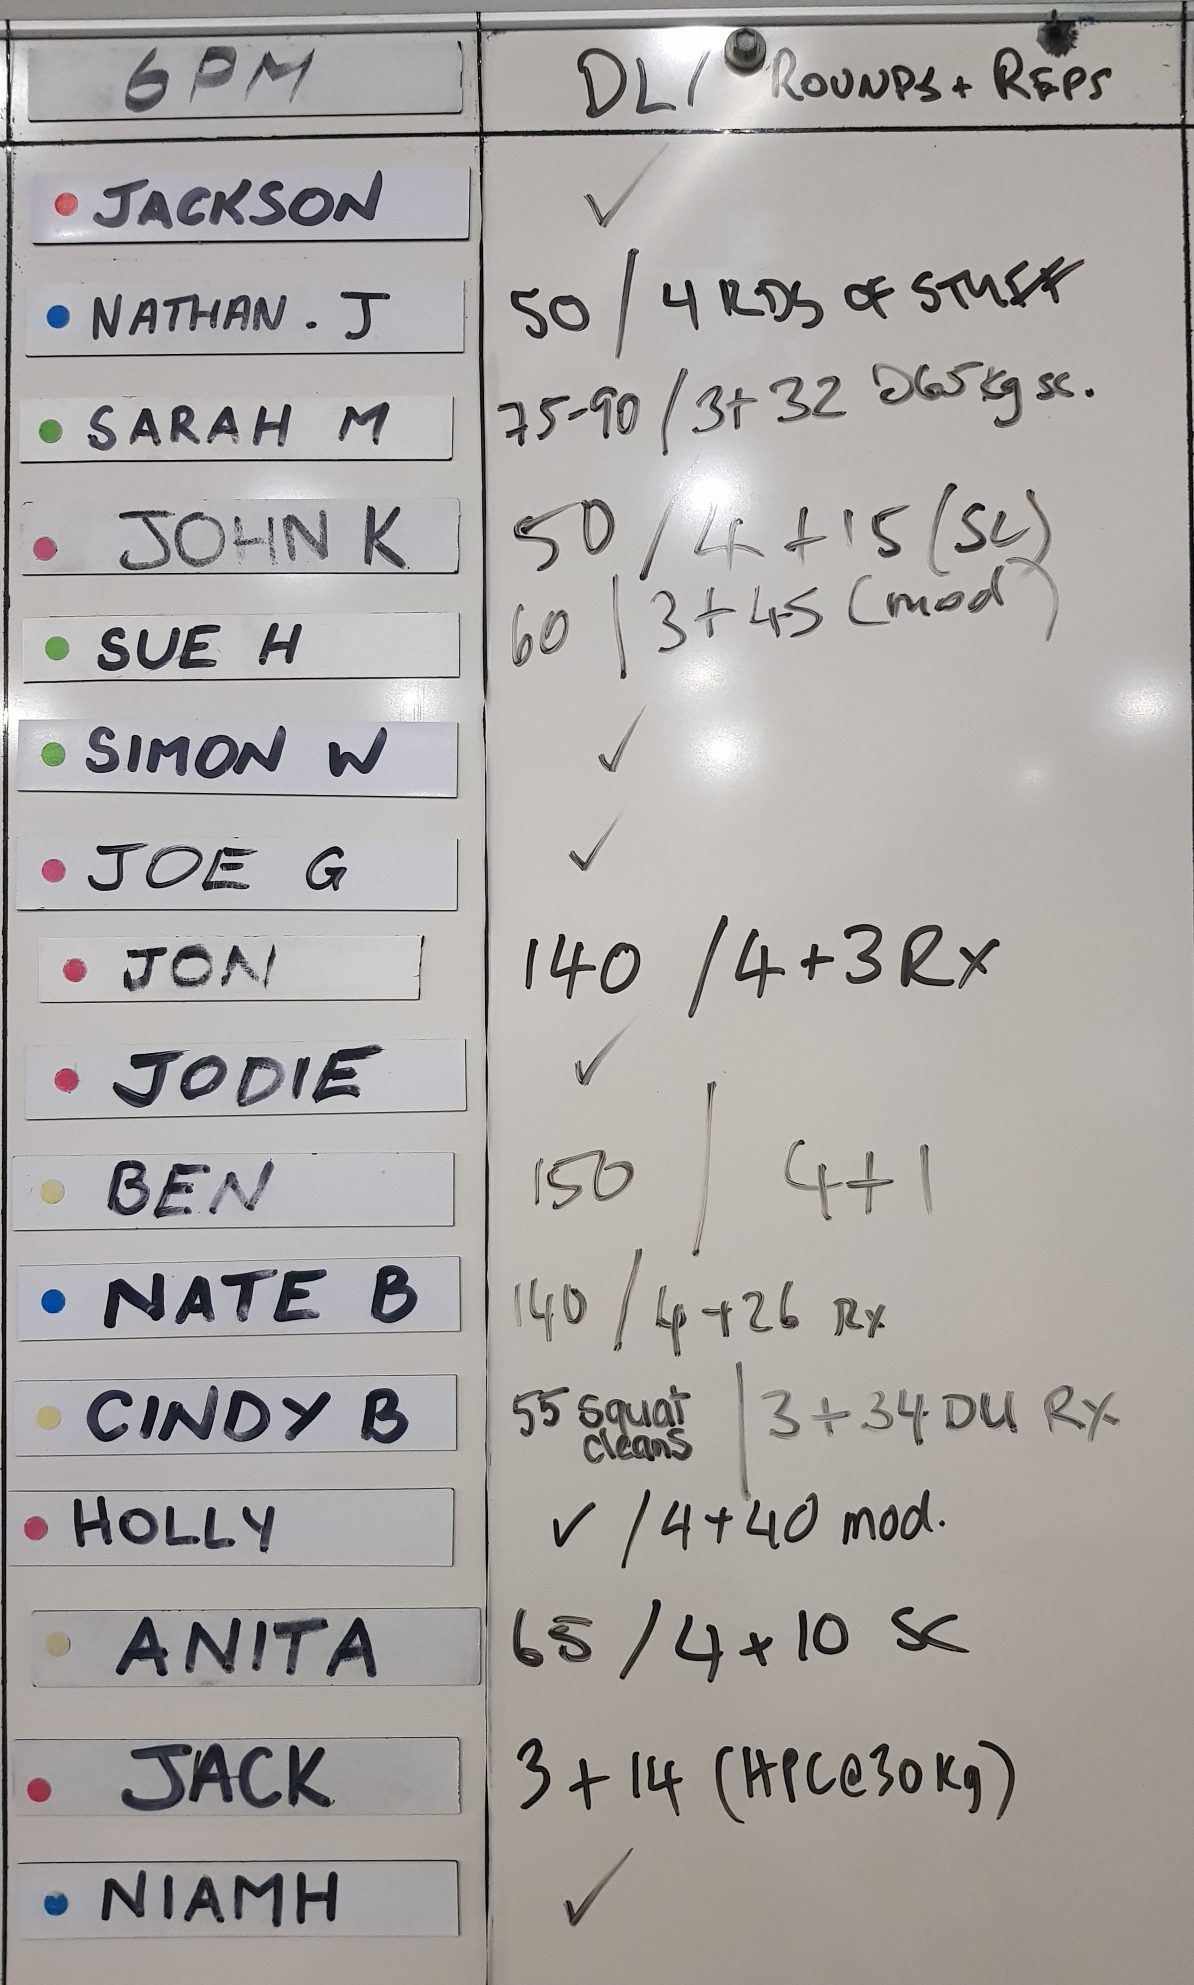 6PM DL / ROUNDS + REPS
JACKSON ✓
NATHAN . J 50 / 4 RDS OF STUFF
SARAH M 75-90 / 3+32 kg sc.
JOHN K 50 / 4 + 15 (SC)
SUE H 60 | 3 + 45 (mod)
SIMON W ✓
JOE G ✓
JON 140 / 4 + 3 Rx
JODIE ✓
BEN 150 | 4+1
NATE B 140 / 4 + 26 Rx
CINDY B 55 squat cleans | 3 + 34 DU Rx
HOLLY ✓ / 4 + 40 mod.
ANITA 65 / 4 + 10 SC
JACK 3 + 14 (HPC@30Kg)
NIAMH ✓